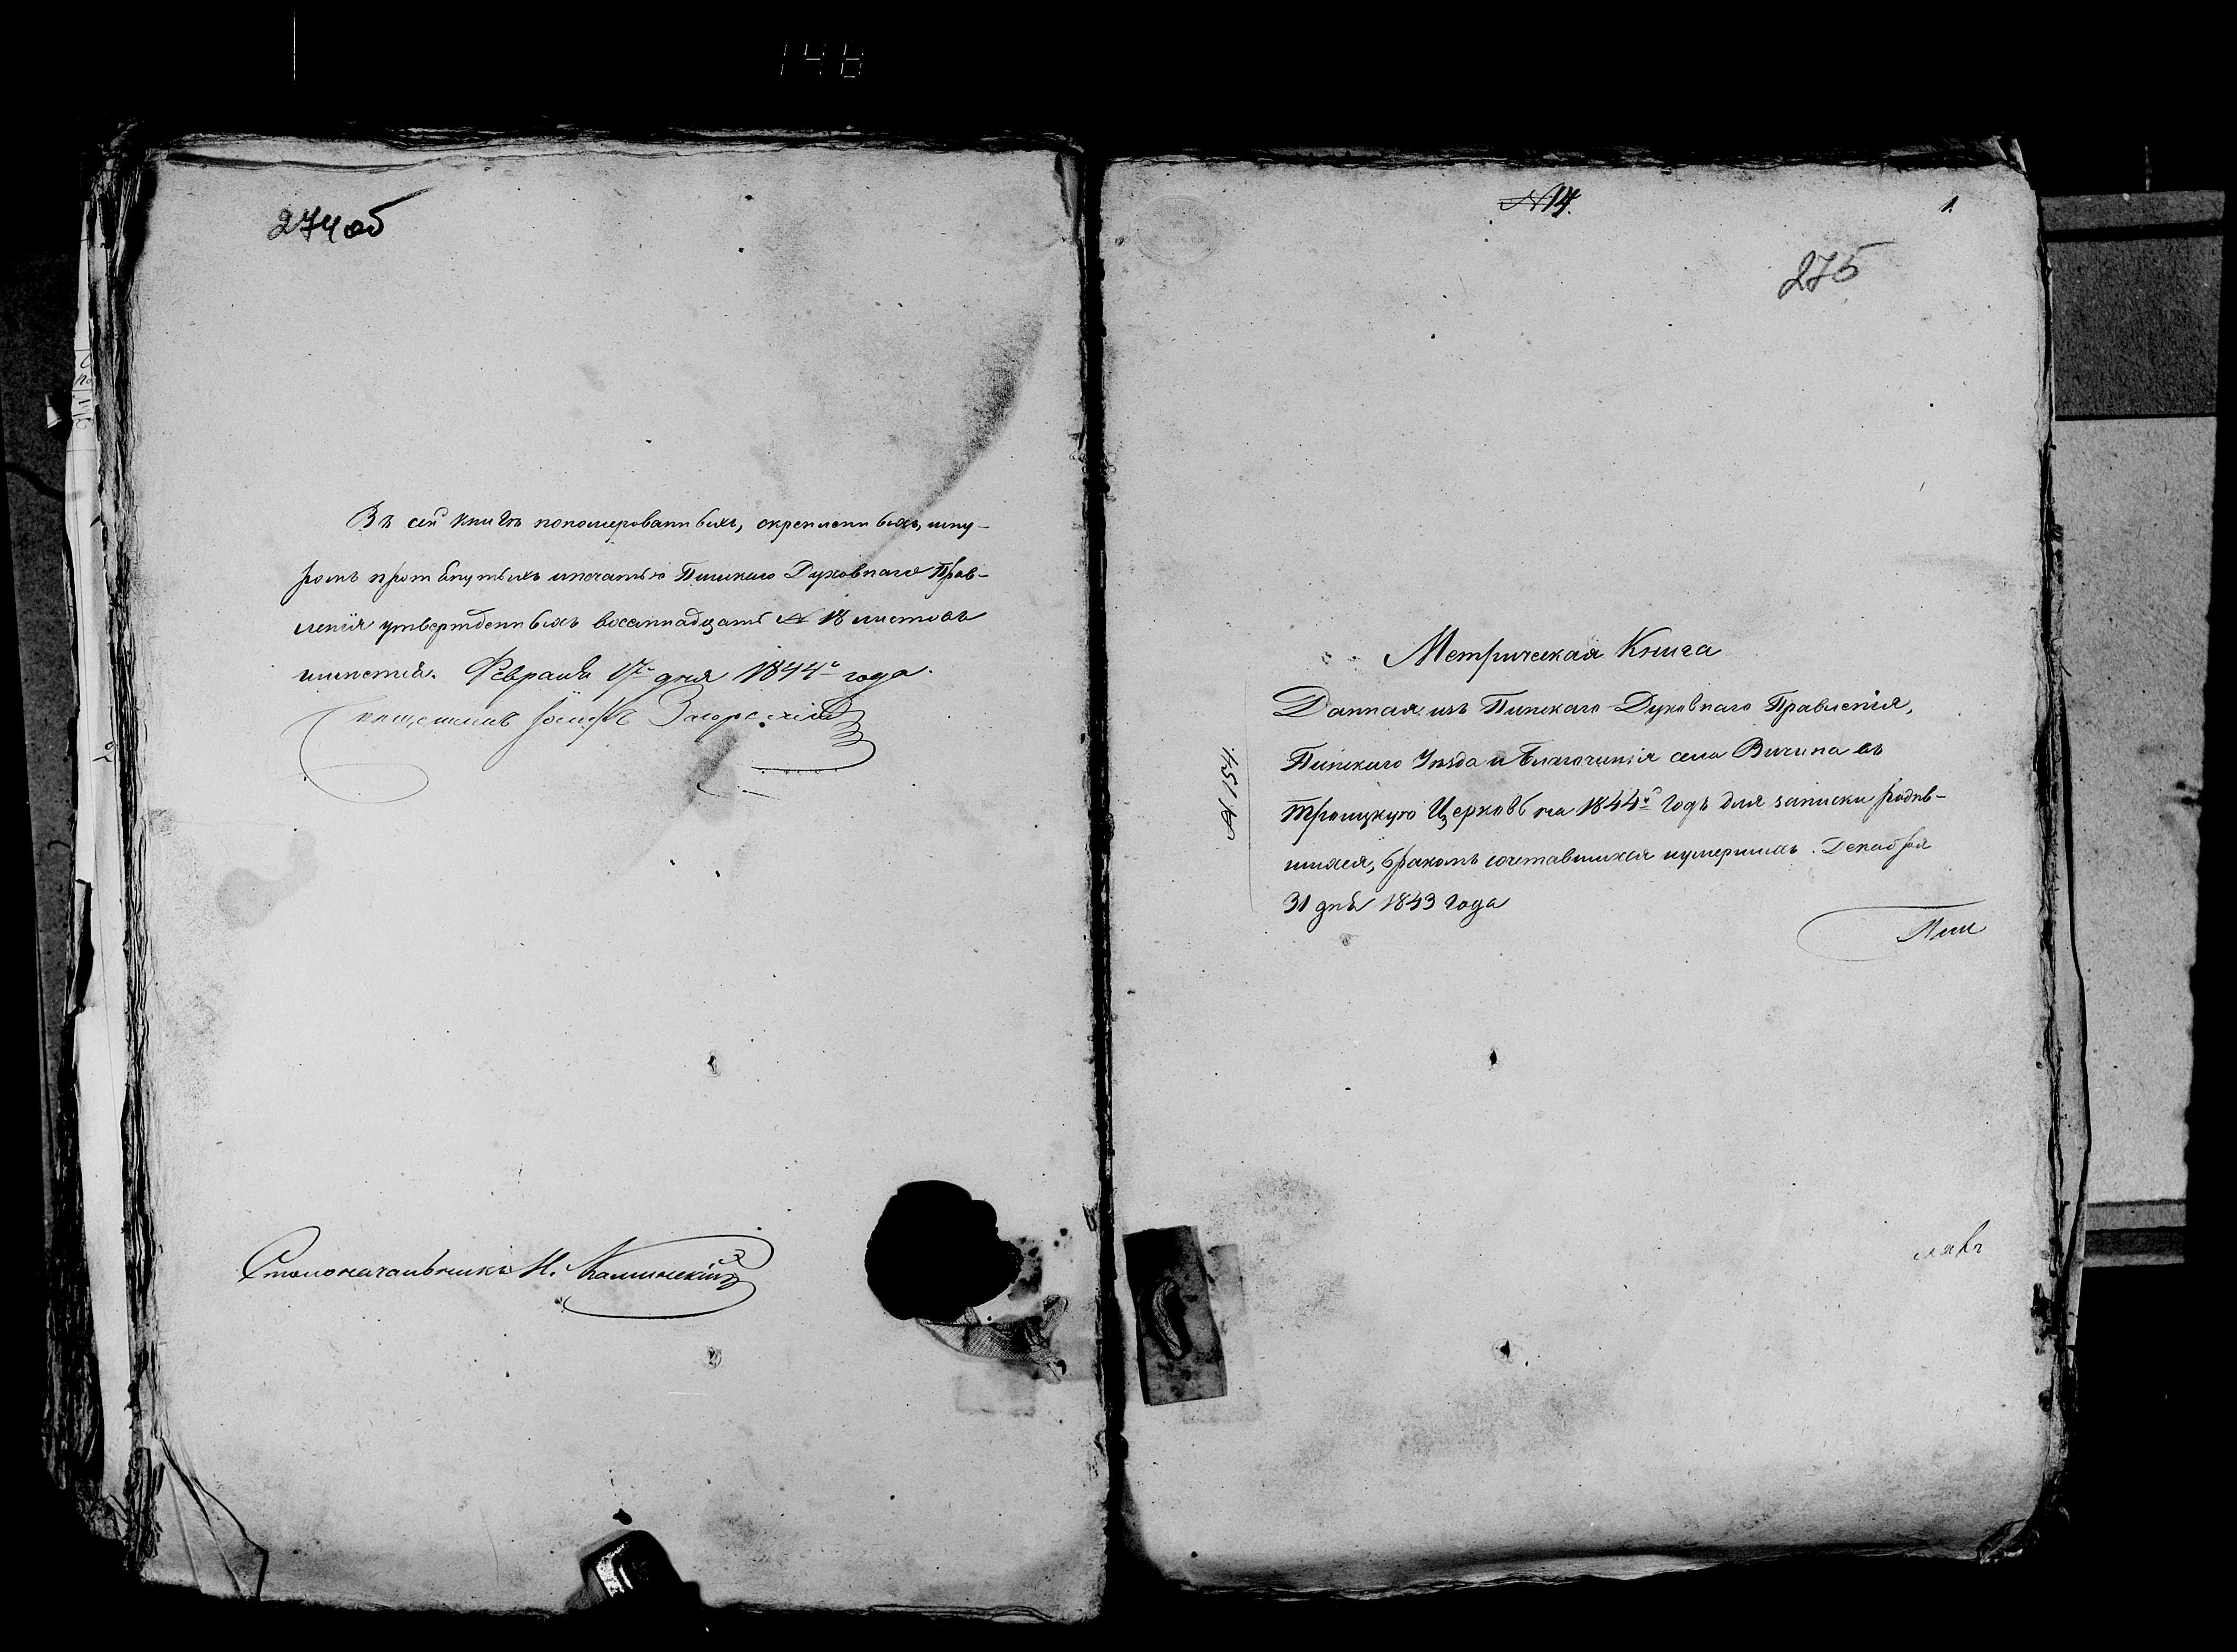 148
274 об
Въ сей книгѣ пономерованныхъ, скрепленныхъ, шну-
ромъ протянутыхъ и печатью Пинскаго Духовнаго Прав-
ленія утвержденныхъ восемнадцать № 18 листовъ
Февраля 17 дня 1844 года.
Іосифъ Загорскій
Столоначальникъ И. Калинскій
№ 14.
1.
275
Метрическая Книга
Данная изъ Пинскаго Духовнаго Правленія,
Пинскаго Уѣзда и Благочинія села Вичина въ
Троицкую Церковь на 1844й годъ для записки родив-
шихся, бракомъ сочетавшихся и умершихъ. Декабря
31 дня 1843 года
№ 154.
Пин